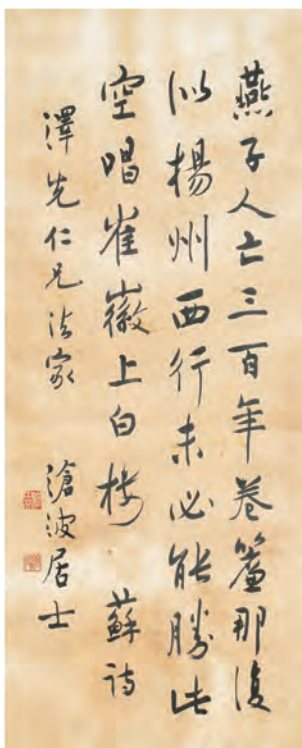 燕子人亡三百年卷簾那復
似楊州西行未必能勝此
空唱崔徽上白樓 蘇詩
澤先仁兄法家 滄波居士